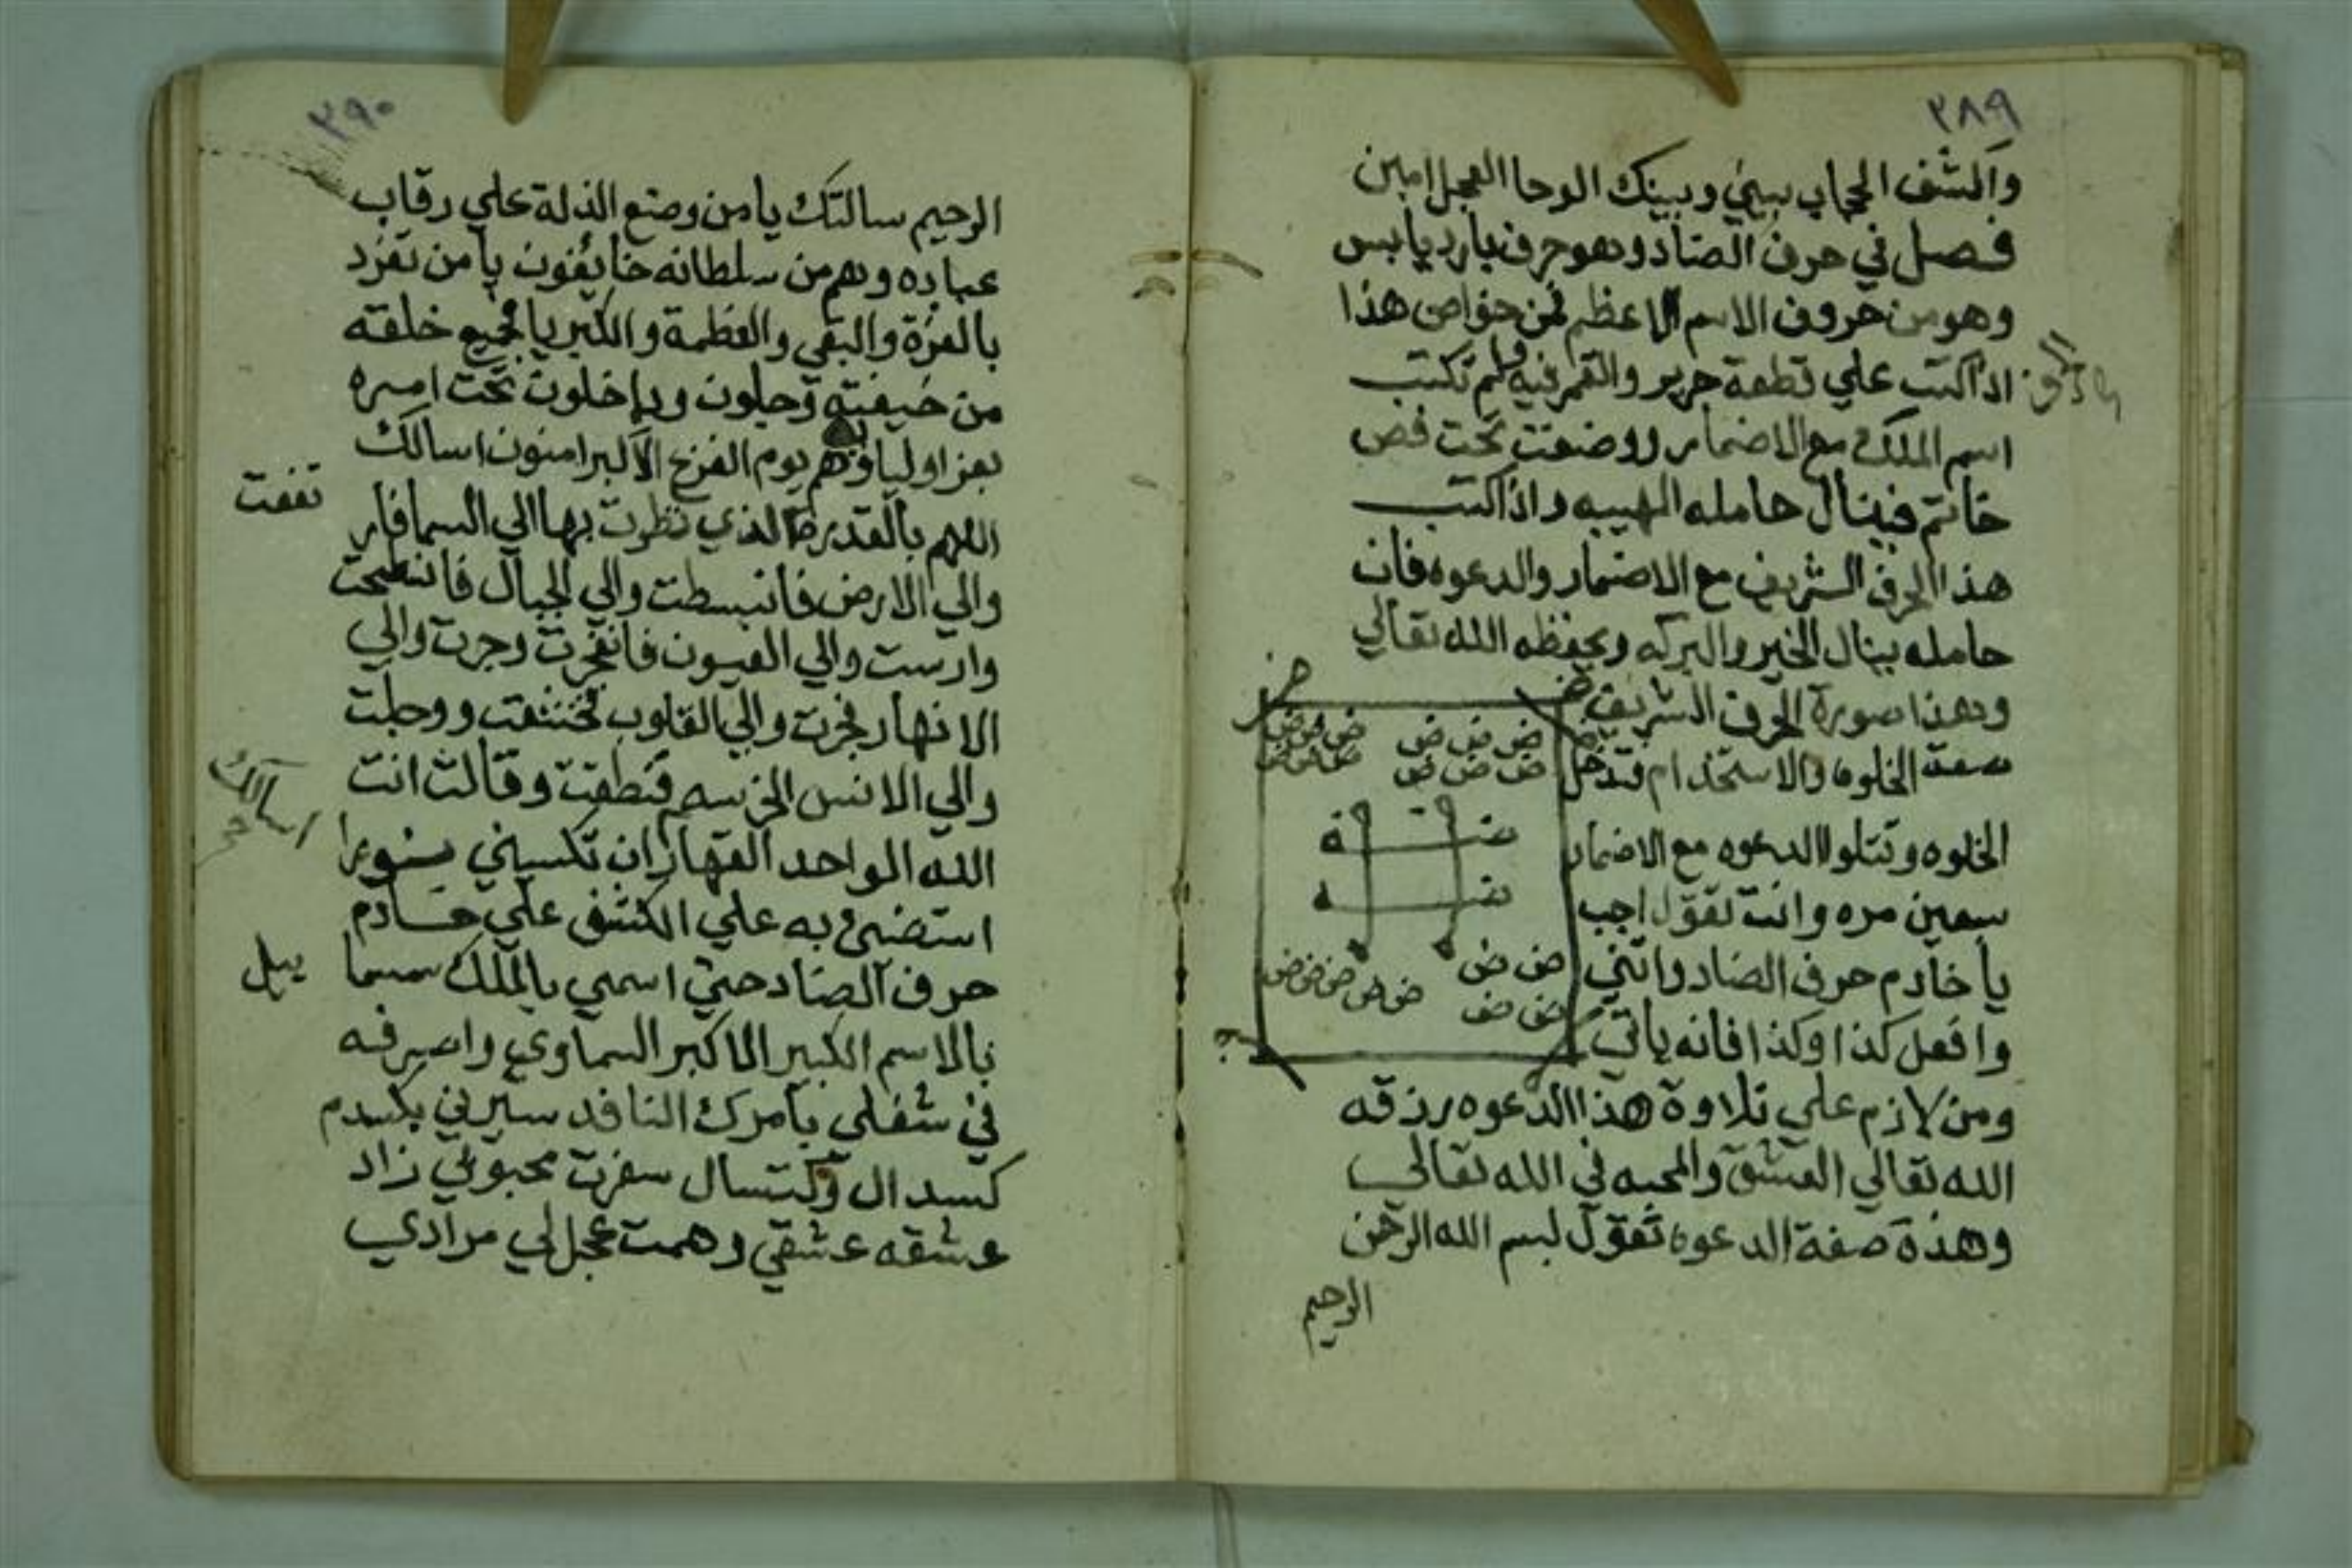 ٢٨٩
واكشف الحجاب بيني وبينك الوحا العجل امين
فصل في حرف الضاد وهو حرف بارد يابس
وهو من حروف الاسم الاعظم فمن خواص هذا
اذا كتب علي قطعة حرير والقمر فيه تكتب
اسم الملك مع الاضمار ووضعت تحت فص
خاتم فينال حامله الهيبه واذا كتب
هذا الحرف الشريف مع الاضمار والدعوه فان
حامله ينال الخير والبركه ويحفظه الله تعالي
وهذا صورة الحرف الشريف
صفة الخلوه والاستخدام فتدخل
الخلوه وتتلوا الدعوه مع الاضمار
سبعين مره وانت تقول اجب
يا خادم حرف الضاد واتني
وافعل كذا وكذا فانه ياتي
ومن لازم علي تلاوة هذا الدعوه رزقه
الله تعالي العشق والمحبه في الله تعالي
وهذة صفة الدعوه تقول بسم الله الرحمن
الرحيم
ض
ض ض ض ض ض ض
ض ض ض ض ض ض
ض ض ض ض ض ض ض
ض ض
٢٩٠
الرحيم سالتك يا من وضع الذلة علي رقاب
عباده وهم من سلطانه خايفون يا من تفرد
بالعزة والبقي والعظمة والكبريا فجميع خلقته
من خيفته وجلون وداخلون تحت امره
بعز اولياوه هم يوم الفزع الاكبر امنون اسالك
اللهم بالقدرة الذي نظرت بها الي السما فار
تفعت
والي الارض فانبسطت والي الجبال فانتطحت
وارست والي العيون فانفجرت وجرت والي
الانهار فجرت والي القلوب فخشعت ووجلت
والي الانس الخرسه فنطقت وقالت انت
الله الواحد القهار ان تكسيني نورا
اسالك
استضئ به علي الكشف علي خادم
حرف الضاد حتي اسمي بالملك سما
ييل
بالاسم الكبير الاكبر السماوي واصرفه
في شغلي بامرك النافد سيرني بكسدم
كسدال وكتسال سفرت محبوبي زاد
عشقه عشقي وهمت عجل لي مرادي